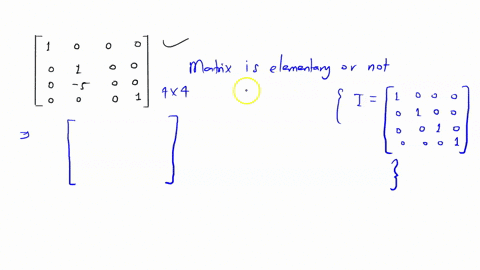 1 0 0 0
0 1 0 0
0 -5 0 0
0 0 0 1
4x4
Matrix is elementary or not
{ I = [ 1 0 0 0
0 1 0 0
0 0 1 0
0 0 0 1 ]
}
⇒ [ ]